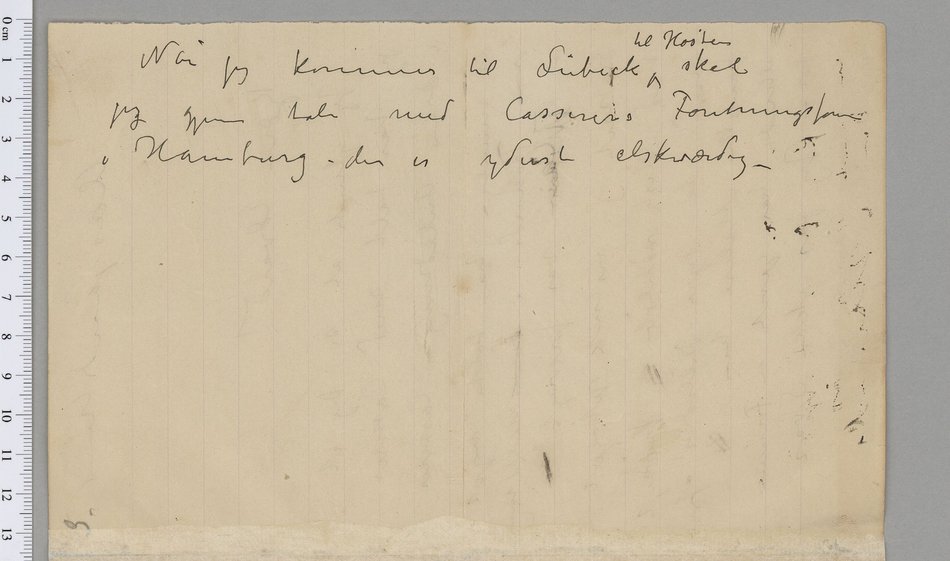 til Høsten
Når jeg kommer til Lübeck, skal
jeg gjerne tale med Cassirers Forretningsfører
i Hamburg – der er yderst elskværdig –
9.
0 cm 1 2 3 4 5 6 7 8 9 10 11 12 13